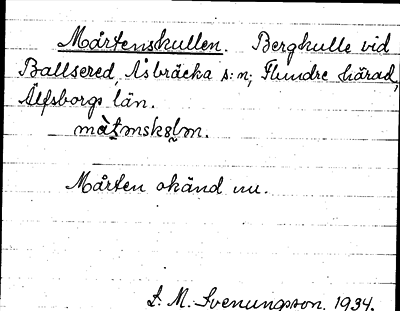 Mårtenskullen. Bergkulle vid
Ballsered, Åsbräcka s:n, Flundre härad,
Älfsborgs län.
Mårten okänd nu.
S. M. Svenungsson. 1934.